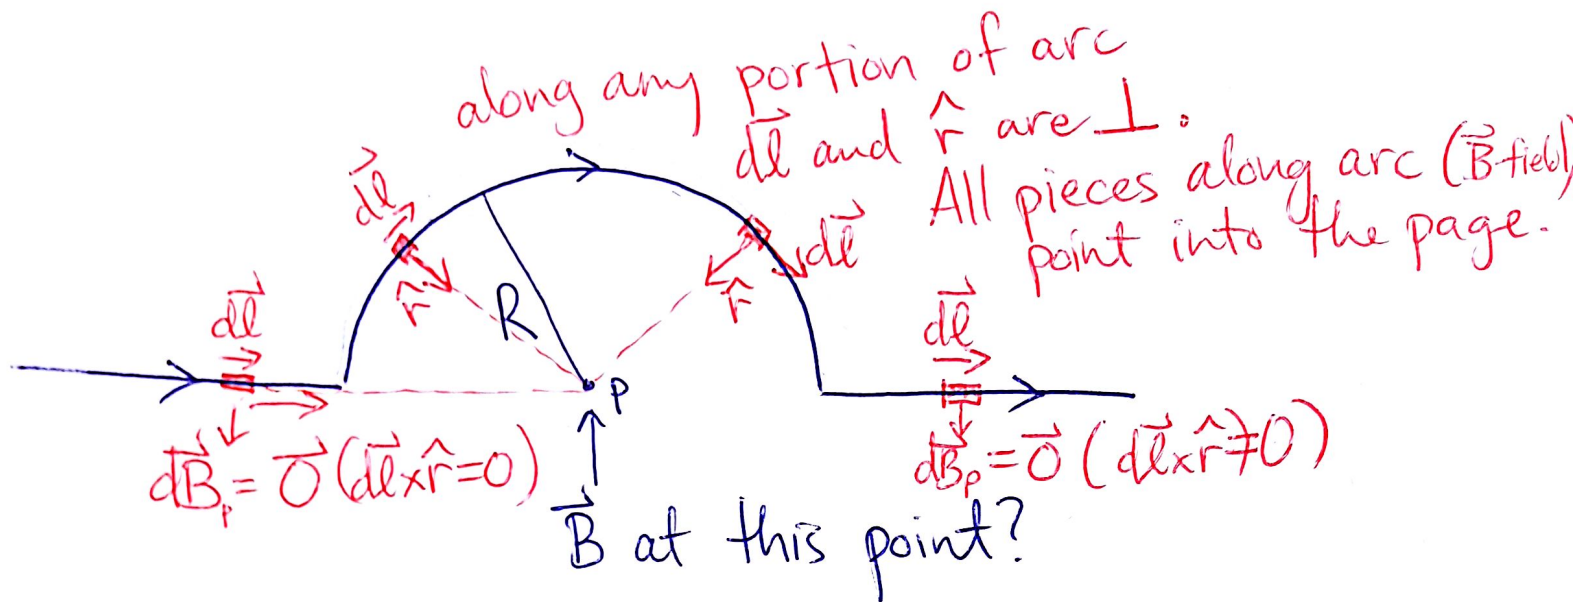 along any portion of arc
d𝑙⃗ and r̂ are ⊥.
All pieces along arc (B⃗-field)
point into the page.
d𝑙⃗
d𝑙⃗
r̂
r̂
R
d𝑙⃗
d𝑙⃗
P
dB⃗ₚ = 0⃗ (d𝑙⃗ × r̂ = 0)
dB⃗ₚ = 0⃗ (d𝑙⃗ × r̂ ≠ 0)
B⃗ at this point?